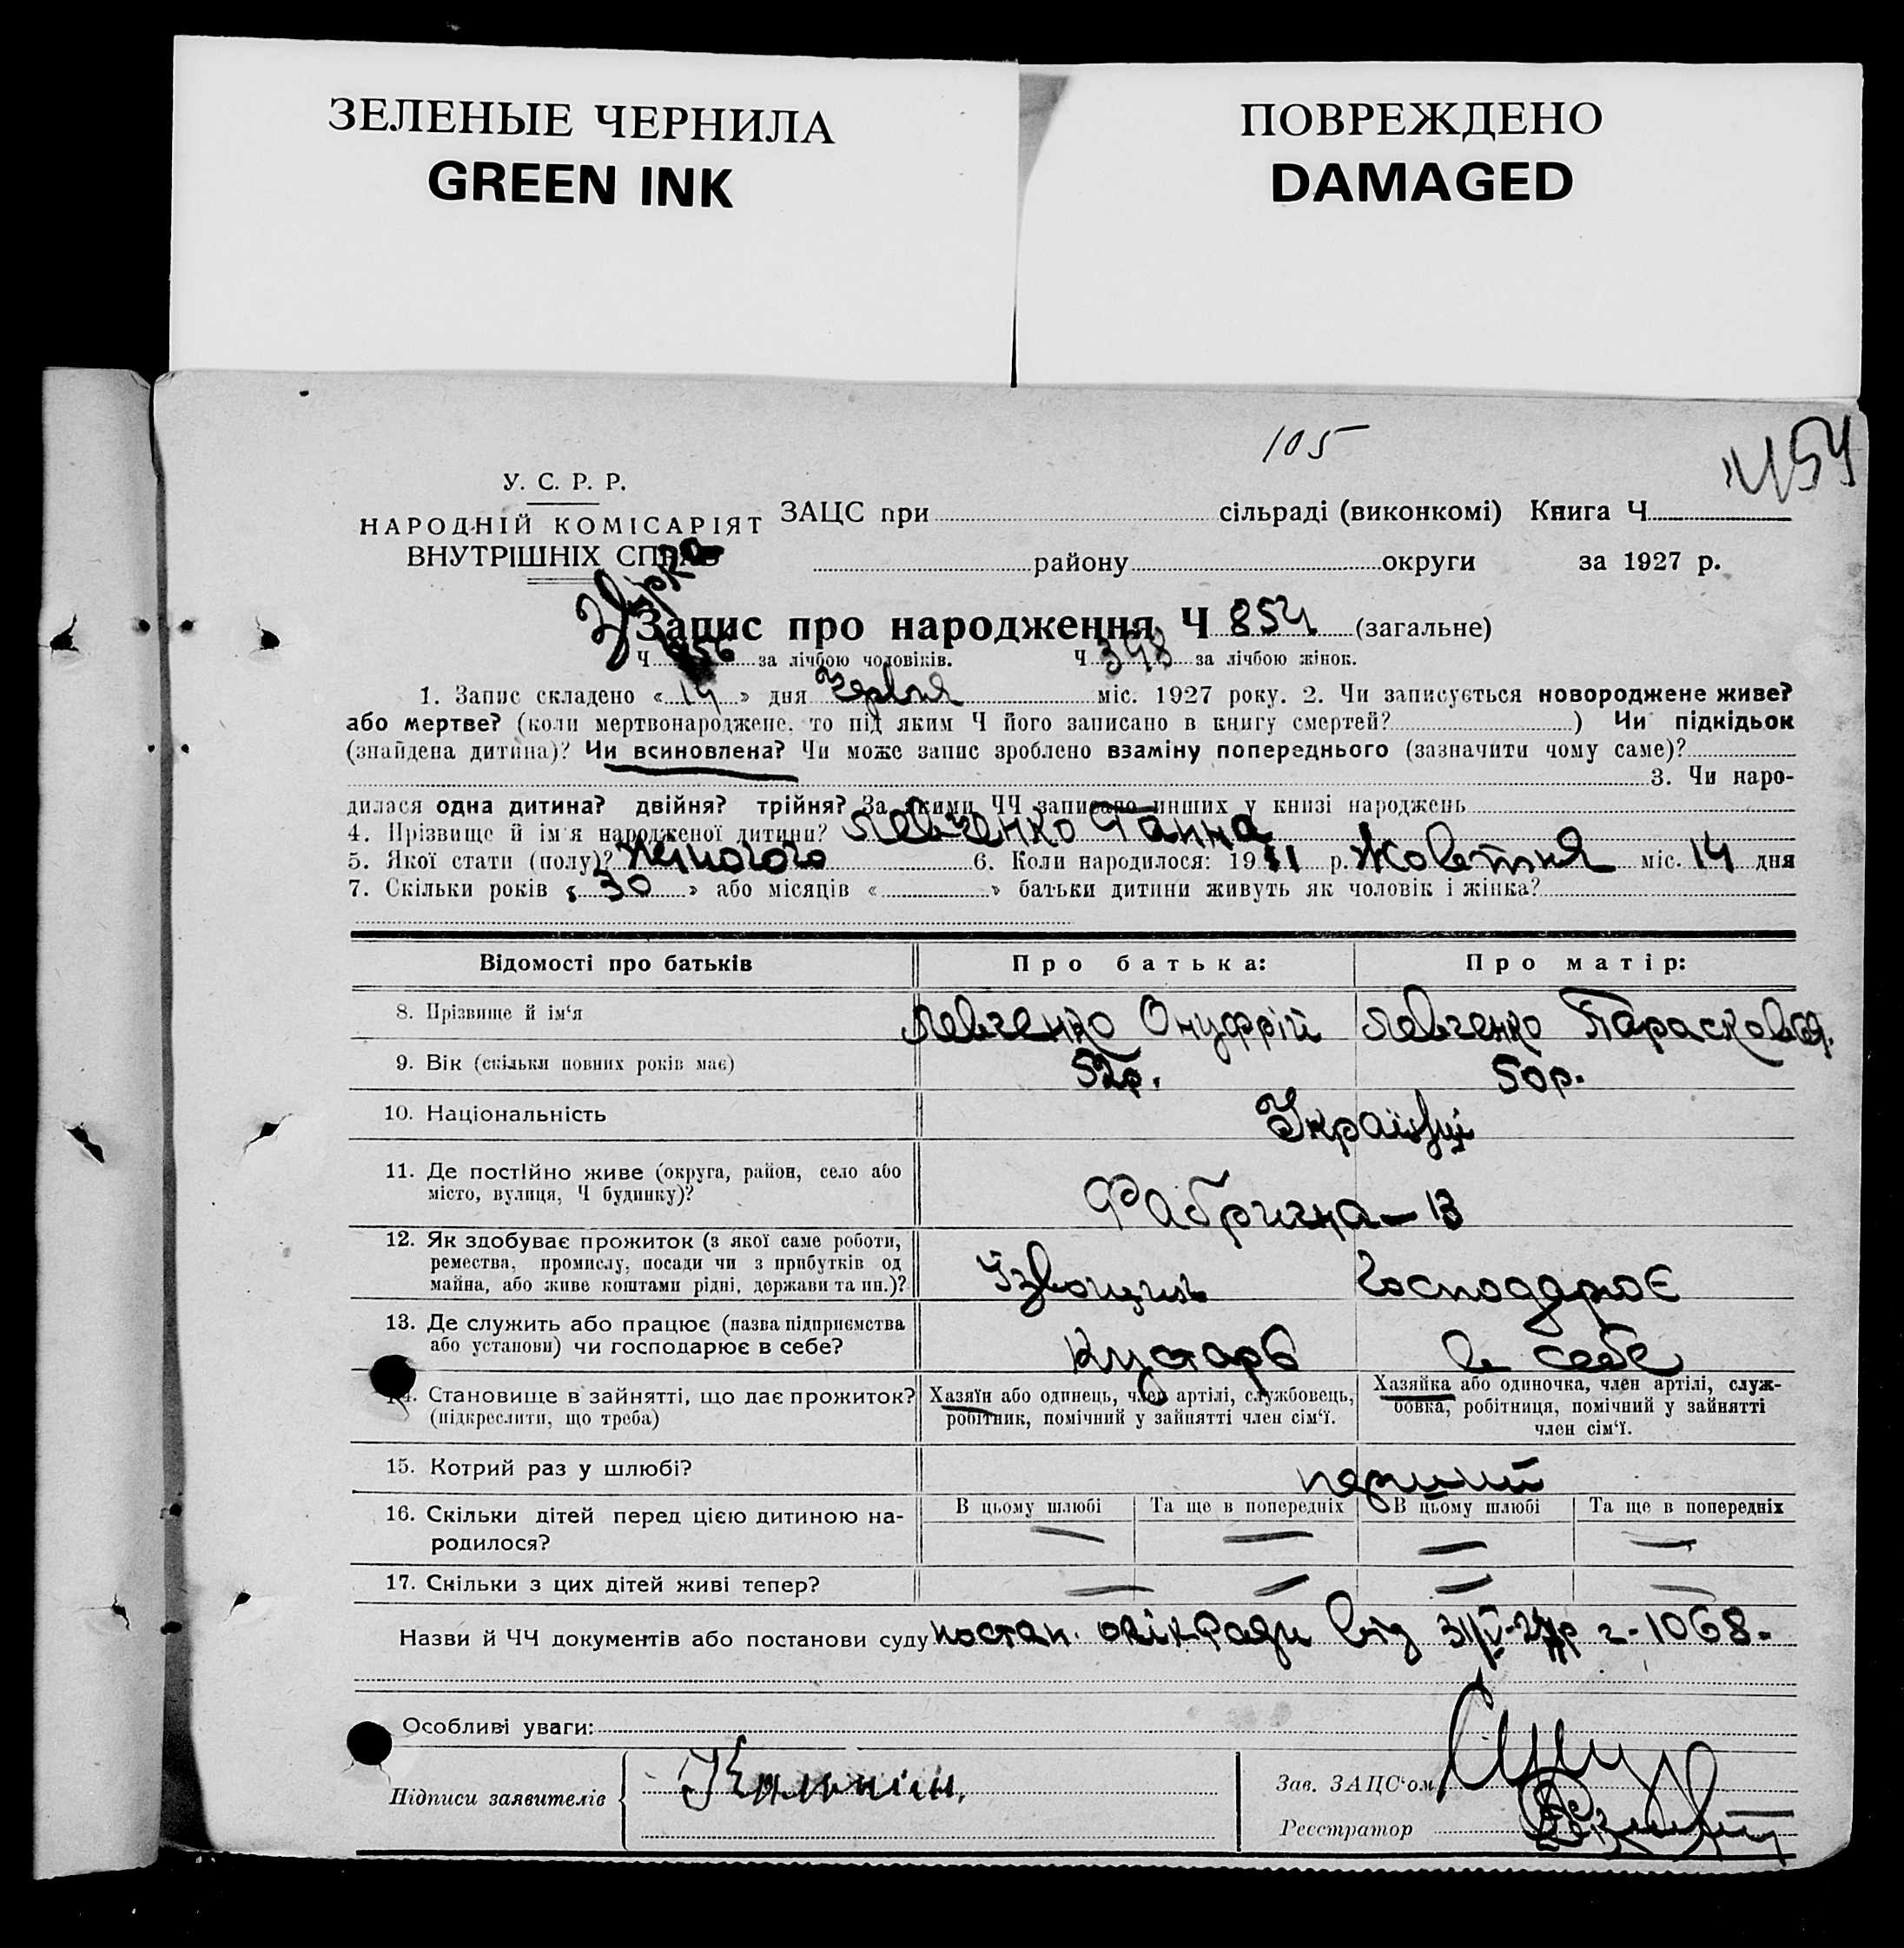 ЗЕЛЕНЫЕ ЧЕРНИЛА
GREEN INK
ПОВРЕЖДЕНО
DAMAGED
105
У. С. Р. Р.
НАРОДНІЙ КОМІСАРІЯТ
ВНУТРІШНІХ СПРАВ
ЗАЦС при сільраді (виконкомі) Книга Ч
району округи за 1927 р.
Запис про народження Ч 854 (загальне)
Ч 456 за лічбою чоловіків. Ч 398 за лічбою жінок.
1. Запис складено «14» дня Червня міс. 1927 року. 2. Чи записується новороджене живе?
або мертве? (коли мертвонароджене, то під яким Ч його записано в книгу смертей? ) Чи підкідьок
(знайдена дитина)? Чи всиновлена? Чи може запис зроблено взаміну попереднього (зазначити чому саме)?
3. Чи наро-
дилася одна дитина? двійня? трійня? За якими ЧЧ записано инших у книзі народжень
4. Прізвище й ім'я народженої дитини? Левченко Ганна
5. Якої стати (полу)? Жіночого 6. Коли народилося: 19 р. Жовтня міс. 14 дня
7. Скільки років «30» або місяців « » батьки дитини живуть як чоловік і жінка?
Відомості про батьків Про батька: Про матір:
8. Прізвище й ім'я Левченко Онуфрій Левченко Парасковея.
9. Вік (скільки повних років має) 52р. 50р.
10. Національність Українці
11. Де постійно живе (округа, район, село або
місто, вулиця, Ч будинку)? Фабрична – 13
12. Як здобуває прожиток (з якої саме роботи,
ремества, промислу, посади чи з прибутків од
майна, або живе коштами рідні, держави та ин.)? Ізвощик Господарює
13. Де служить або працює (назва підприємства
або установи) чи господарює в себе? Кустарь в себе
14. Становище в зайнятті, що дає прожиток?
(підкреслити, що треба)
Хазяїн або одинець, член артілі, службовець,
робітник, помічний у зайнятті член сім'ї.
Хазяйка або одиночка, член артілі, служ-
бовка, робітниця, помічний у зайнятті
член сім'ї.
15. Котрий раз у шлюбі? перший
16. Скільки дітей перед цією дитиною на-
родилося?
В цьому шлюбі Та ще в попередніх В цьому шлюбі Та ще в попередніх
— — — —
17. Скільки з цих дітей живі тепер? — — — —
Назви й ЧЧ документів або постанови суду постан. опікради від 31/V-27р ч-1068.
Особливі уваги:
Підписи заявителів
Зав. ЗАЦС'ом
Реєстратор